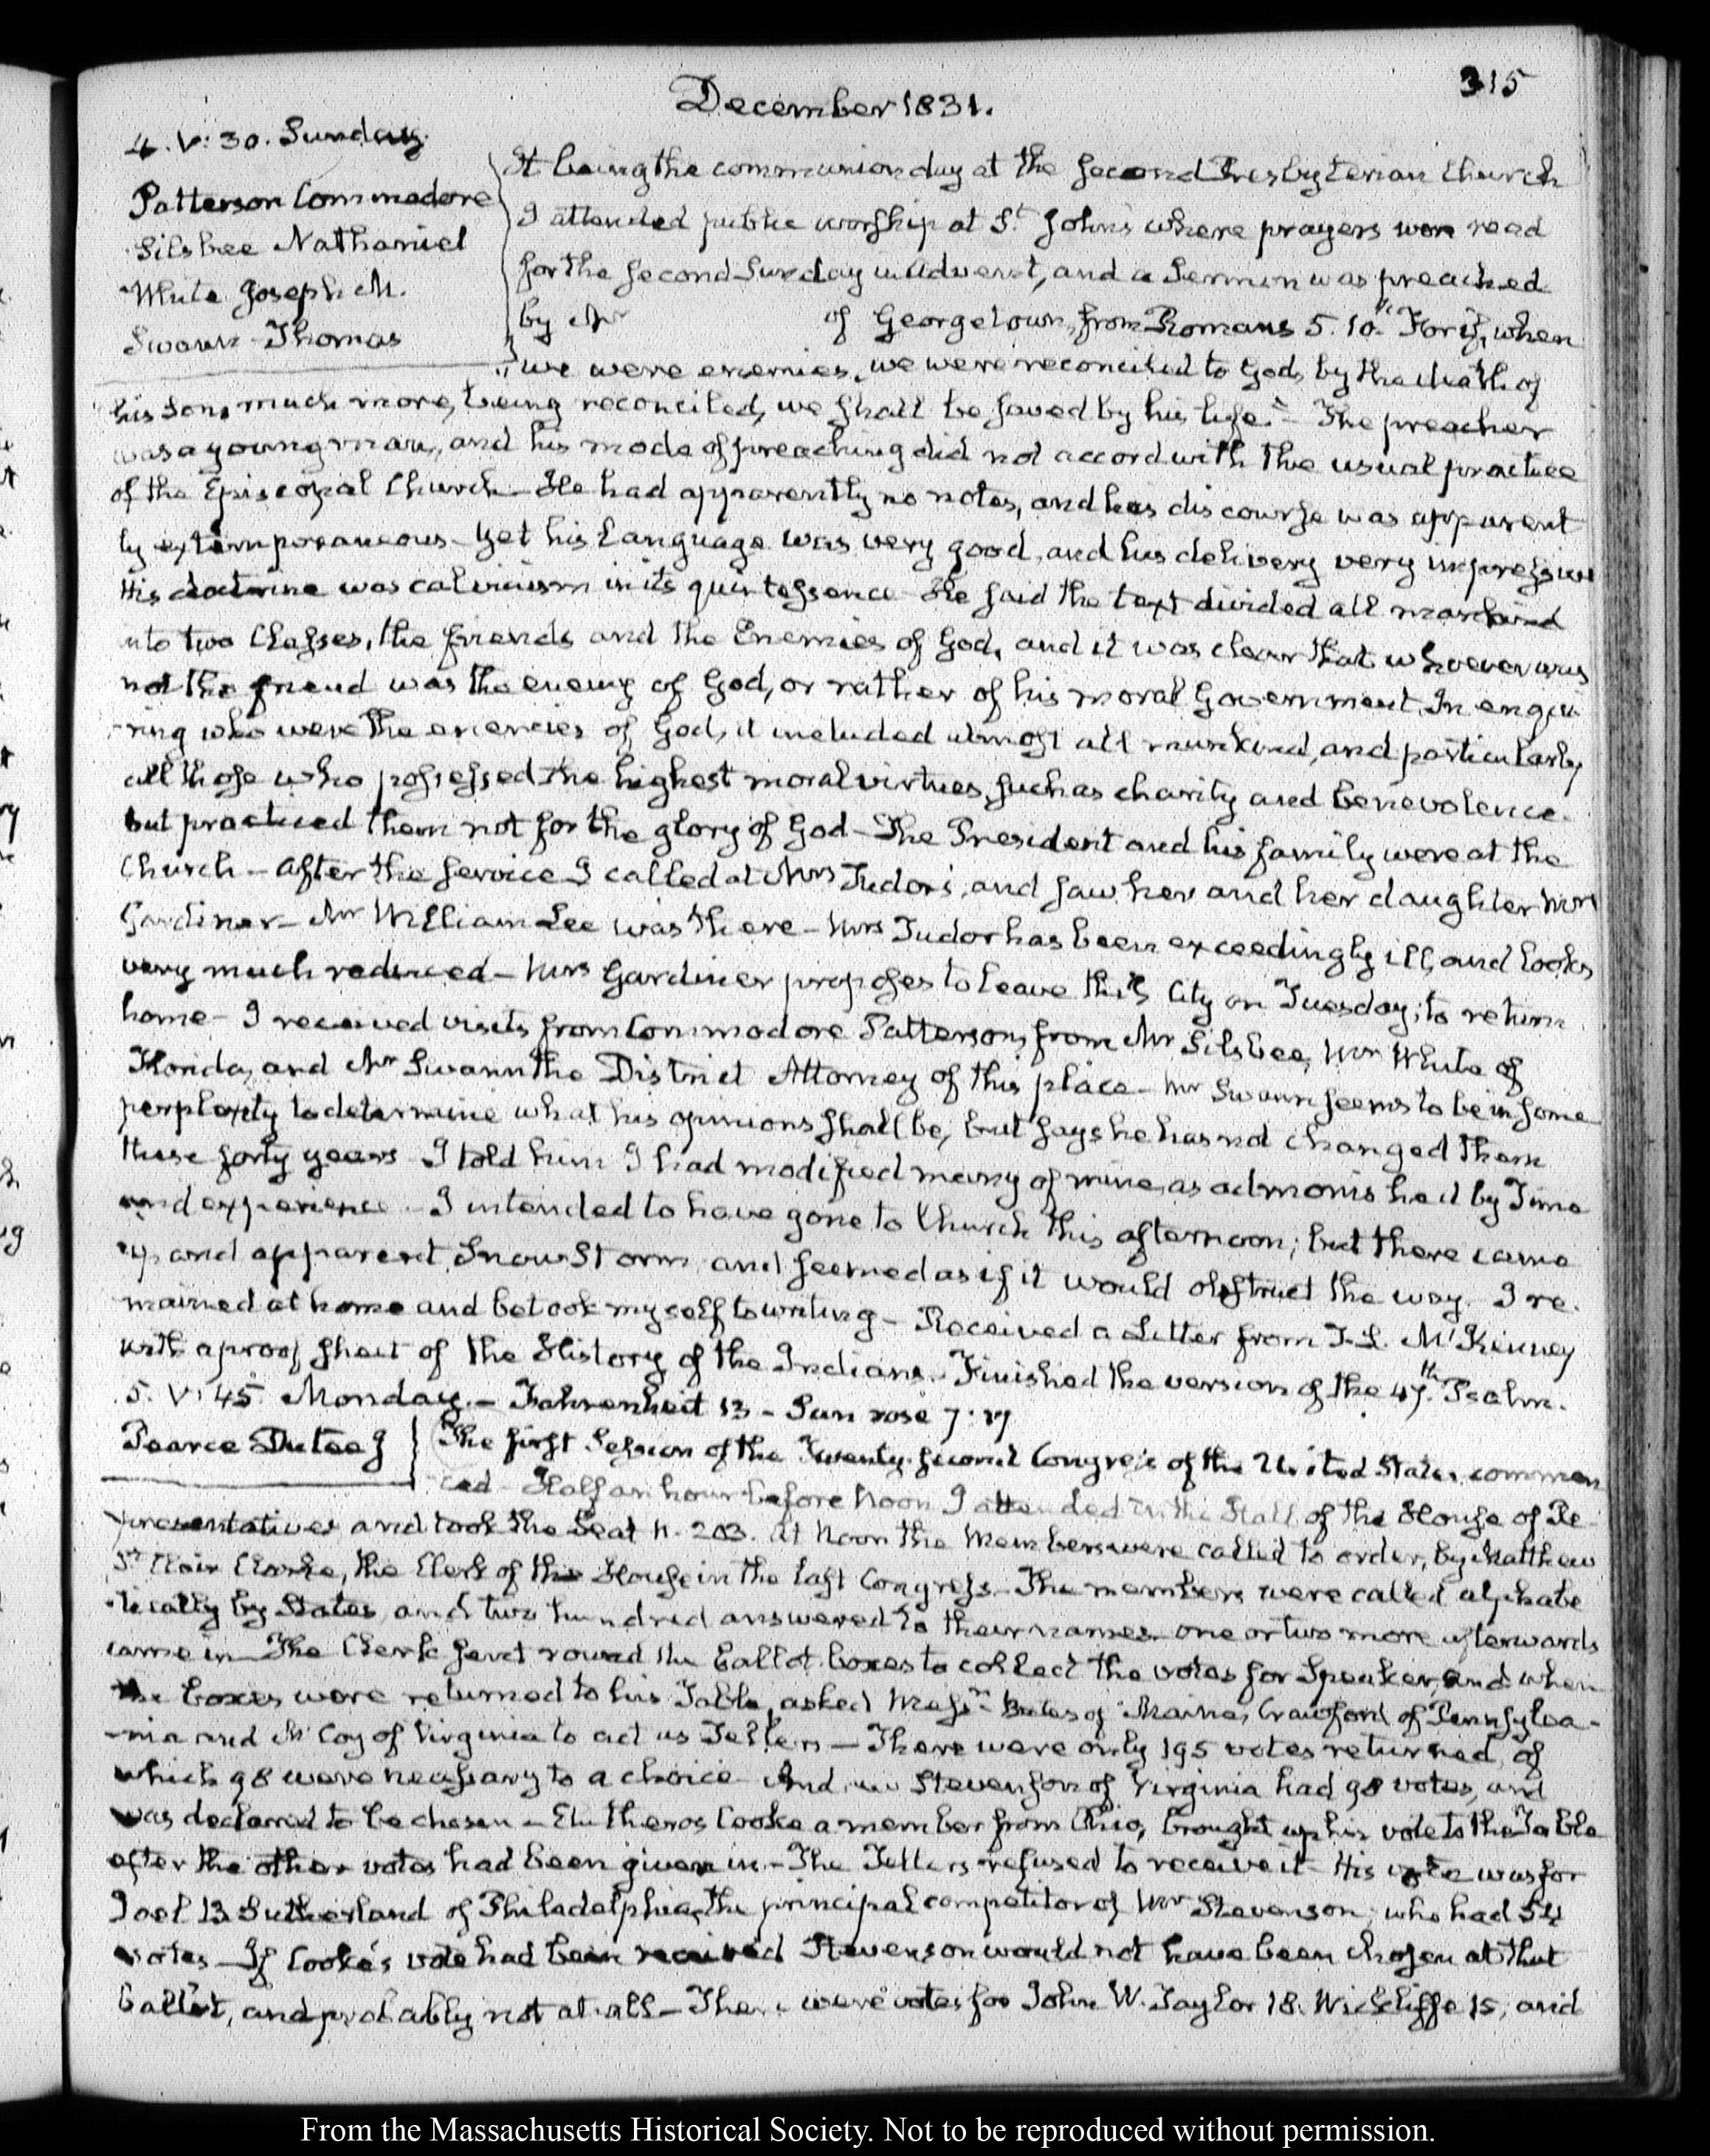 315
December 1831.
4. V: 30. Sunday.
Patterson Commodore
Silsbee Nathaniel
White Joseph M.
Swann Thomas
It being the communion day at the second Presbyterian Church
I attended public worship at St. John's where prayers were read
for the second Sunday in Advent, and a Sermon was preached
by Mr of Georgetown, from Romans 5. 10. "For if, when
"we were enemies, we were reconciled to God, by the death of
his Son, much more, being reconciled, we shall be saved by his life." – The preacher
was a young man, and his mode of preaching did not accord with the usual practice
of the Episcopal Church – He had apparently no notes, and his discourse was apparent
ly extemporaneous – Yet his Language was very good, and his delivery very impressive
His doctrine was calvinism in its quintessence – He said the text divided all mankind
into two Classes, the friends and the Enemies of God, and it was clear that whoever was
not the friend was the enemy of God, or rather of his moral Government. In enqui-
-ring who were the enemies of God, it included almost all mankind, and particularly
all those who possessed the highest moral virtues, such as charity and benevolence
but practiced them not for the glory of God – The President and his family were at the
Church – After the service I called at Mrs Tudor's, and saw her and her daughter Mrs
Gardiner – Mr William Lee was there – Mrs Tudor has been exceedingly ill, and looks
very much reduced – Mrs Gardiner proposes to leave this City on Tuesday, to return
home – I received visits from Commodore Patterson, from Mr Silsbee, Mr White of
Florida, and Mr Swann the District Attorney of this place – Mr Swann seems to be in some
perplexity to determine what his opinions shall be, but says he has not changed them
these forty years – I told him I had modified many of mine, as admonished by Time
and experience – I intended to have gone to Church this afternoon; but there came
up and apparent Snow Storm, and seemed as if it would obstruct the way. I re-
mained at home and betook myself to writing – Received a Letter from T. L. McKenney
with a proof sheet of the History of the Indians. Finished the version of the 47th. Psalm.
5. V: 45 Monday. – Fahrenheit 13 – Sun rose 7:17
Pearce Dutee J
The first Session of the Twenty-second Congress of the United States, commen
ced – Half an hour before Noon I attended in the Hall of the House of Re-
presentatives and took the Seat N. 203. At Noon the Members were called to order, by Matthew
St Clair Clarke, the Clerk of the House in the last Congress – The members were called alphabe
-tically by States, and two hundred answered to their names – one or two more afterwards
came in – The Clerk sent round the ballot boxes to collect the votes for Speaker, and when
the boxes were returned to his Table, asked Messrs. Bates of Maine, Crawford of Pennsylva-
-nia and McCoy of Virginia to act as Tellers – There were only 195 votes returned, of
which 98 were necessary to a choice – Andrew Stevenson of Virginia had 98 votes, and
was declared to be chosen – Eleutheros Cooke a member from Ohio, brought up his vote to the Table
after the other votes had been given in – The Tellers refused to receive it – His vote was for
Joel B. Sutherland of Philadelphia, the principal competitor of Mr Stevenson; who had 54
votes – If Cooke's vote had been received Stevenson would not have been chosen at that
Ballot, and probably not at all – There were votes for John W. Taylor 18. Wickliffe 15, and
From the Massachusetts Historical Society. Not to be reproduced without permission.